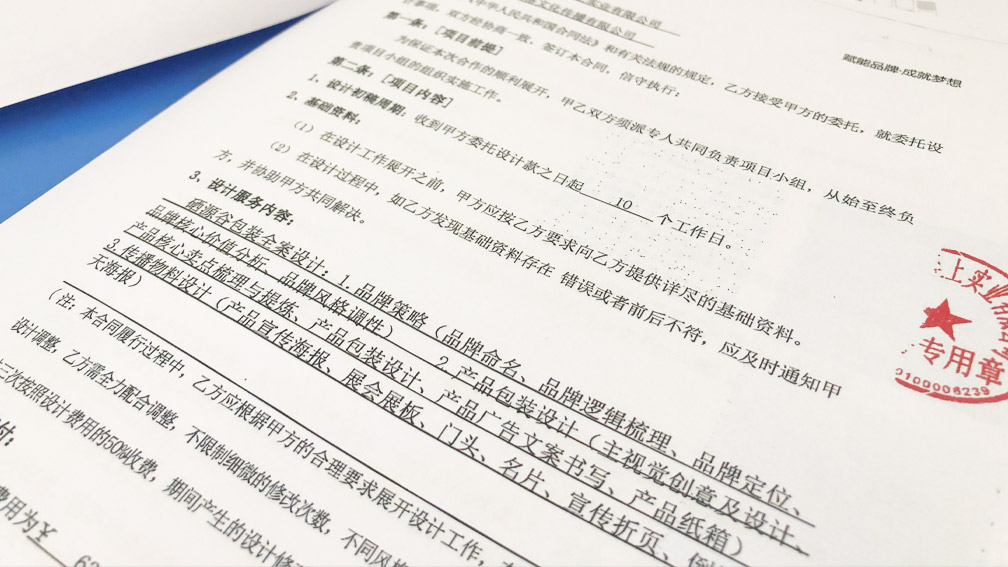 实业有限公司
文化传播有限公司
赋能品牌·成就梦想
中华人民共和国合同法》和有关法规的规定，乙方接受甲方的委托，就委托设
计事项，双方经协商一致，签订本合同，信守执行：
第一条：[项目前提]
为保证本次合作的顺利展开，甲乙双方须派专人共同负责项目小组，从始至终负
责项目小组的组织实施工作。
第二条：[项目内容]
1、设计初稿周期：收到甲方委托设计款之日起 10 个工作日。
2、基础资料：
（1）在设计工作展开之前，甲方应按乙方要求向乙方提供详尽的基础资料。
（2）在设计过程中，如乙方发现基础资料存在 错误或者前后不符，应及时通知甲
方，并协助甲方共同解决。
3、设计服务内容：
硒源谷包装全案设计：1.品牌策略（品牌命名、品牌逻辑梳理、品牌定位、
品牌核心价值分析、品牌风格调性） 2.产品包装设计（主视觉创意及设计、
产品核心卖点梳理与提炼、产品包装设计、产品广告文案书写、产品纸箱）
3.传播物料设计（产品宣传海报、展会展板、门头、名片、宣传折页、
天海报）
（注：本合同履行过程中，乙方应根据甲方的合理要求展开设计工作，
设计调整，乙方需全力配合调整，不限制细微的修改次数，不同风格
三次按照设计费用的50%收费，期间产生的设计修
付：
费用为￥ 6
上实业有限
专用章
0100006239